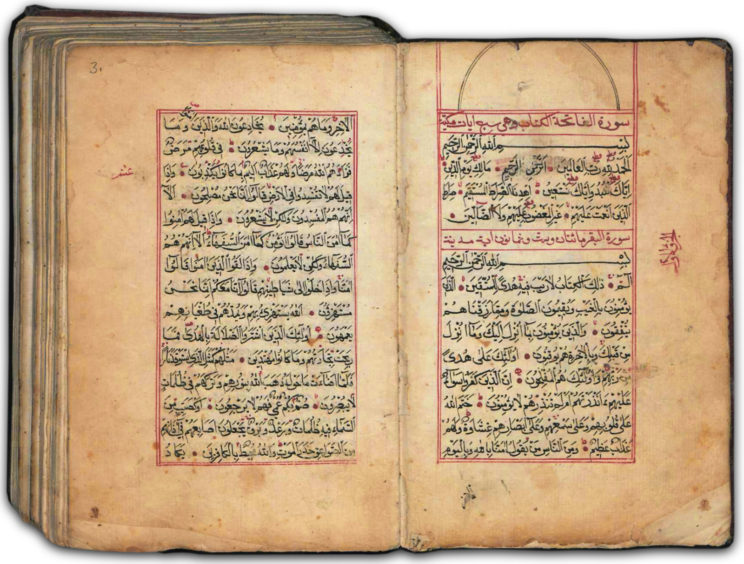 سورة الفاتحة الكتاب وهي سبع ايات مكية
بسم الله الرحمن الرحيم
الحمد لله رب العالمين الرحمن الرحيم مالك يوم الدين
اياك نعبد واياك نستعين اهدنا الصراط المستقيم صراط
الذين انعمت عليهم غير المغضوب عليهم ولا الضالين
سورة البقر مائتان وست وثمانون اية مدينة
بسم الله الرحمن الرحيم
الم ذلك الكتاب لا ريب فيه هدى للمتقين الذين
يؤمنون بالغيب ويقيمون الصلوة ومما رزقناهم
ينفقون والذين يؤمنون بما انزل اليك وما انزل
من قبلك وبالاخرة هم يوقنون اولئك على هدى
من ربهم واولئك هم المفلحون ان الذين كفروا سواء
عليهم ءانذرتهم ام لم تنذرهم لا يؤمنون ختم الله
على قلوبهم وعلى سمعهم وعلى ابصارهم غشاوة ولهم
عذاب عظيم ومن الناس من يقول امنا بالله وباليوم
3
الاخر وما هم بمؤمنين يخادعون الله والذين امنوا وما
يخدعون الا انفسهم وما يشعرون في قلوبهم مرض
فزادهم الله مرضا ولهم عذاب اليم بما كانوا يكذبون واذا
قيل لهم لا تفسدوا في الارض قالوا انما نحن مصلحون الا
انهم هم المفسدون ولكن لا يشعرون واذا قيل لهم امنوا
كما امن الناس قالوا انؤمن كما امن السفهاء الا انهم هم
السفهاء ولكن لا يعلمون واذا لقوا الذين امنوا قالوا
امنا واذا خلوا الى شياطينهم قالوا انا معكم انما نحن
مستهزؤن الله يستهزئ بهم ويمدهم في طغيانهم
يعمهون اولئك الذين اشتروا الضلالة بالهدى فما
ربحت تجارتهم وما كانوا مهتدين مثلهم كمثل الذي استوقد نارا
فلما اضاءت ما حوله ذهب الله بنورهم وتركهم في ظلمات
لا يبصرون صم بكم عمي فهم لا يرجعون او كصيب من
السماء فيه ظلمات ورعد وبرق يجعلون اصابعهم في اذانهم
من الصواعق حذر الموت والله محيط بالكافرين يكاد
عشر